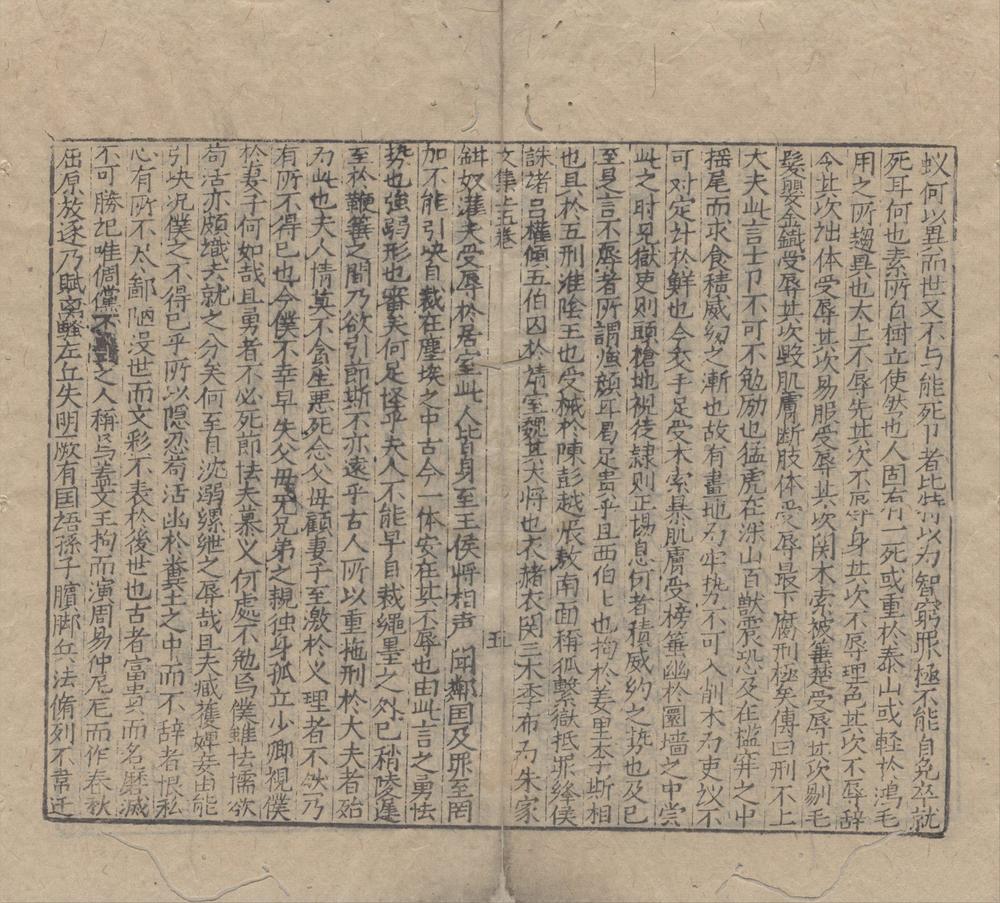 蚁何以異而世又不与能死卪者比特以为智窮罪極不能自免卒就
死耳何也素所自樹立使然也人固有一死或重於泰山或軽於鴻毛
用之所趨異也太上不辱先其次不辱身其次不辱理色其次不辱辞
令其次詘体受辱其次易服受辱其次関木索被箠楚受辱其次剔毛
髮嬰金鉄受辱其次毀肌膚断肢体受辱最下腐刑極矣傳曰刑不上
大夫此言士卪不可不勉励也猛虎在深山百獣震恐及在檻穽之中
揺尾而求食積威約之漸也故有畫地为牢势不可入削木为吏议不
可对定计於鮮也今交手足受木索暴肌膚受榜箠幽於圜墙之中当
此之时見獄吏則頭槍地視徒隸則正惕息何者積威約之势也及已
至是言不辱者所謂強顔耳曷足貴乎且西伯伯也拘於羑里李斯相
也且於五刑淮陰王也受械於陳彭越張敖南面稱孤繫獄抵罪絳侯
誅諸呂權傾五伯囚於請室魏其大将也衣赭衣関三木季布为朱家
文集上五巻
五
鉗奴灌夫受辱於居室此人皆身至王侯将相声聞鄰国及罪至罔
加不能引决自裁在塵埃之中古今一体安在其不辱也由此言之勇怯
势也強弱形也審矣何足怪乎夫人不能早自裁繩墨之外已稍陵遲
至於鞭箠之間乃欲引卪斯不亦遠乎古人所以重施刑於大夫者殆
为此也夫人情莫不貪生悪死念父母顧妻子至激於义理者不然乃
有所不得已也今僕不幸早失父母无兄弟之親独身孤立少卿視僕
於妻子何如哉且勇者不必死節怯夫慕义何處不勉焉僕雖怯懦欲
苟活亦頗識去就之分矣何至自沈溺縲绁之辱哉且夫臧獲婢妾由能
引决况僕之不得已乎所以隐忍苟活幽於糞土之中而不辞者恨私
心有所不尽鄙陋没世而文彩不表於後世也古者富貴而名磨滅
不可勝记唯倜儻不之人稱焉盖文王拘而演周易仲尼厄而作春秋
屈原放逐乃賦离騷左丘失明厥有国语孫子臏脚兵法脩列不韋迁